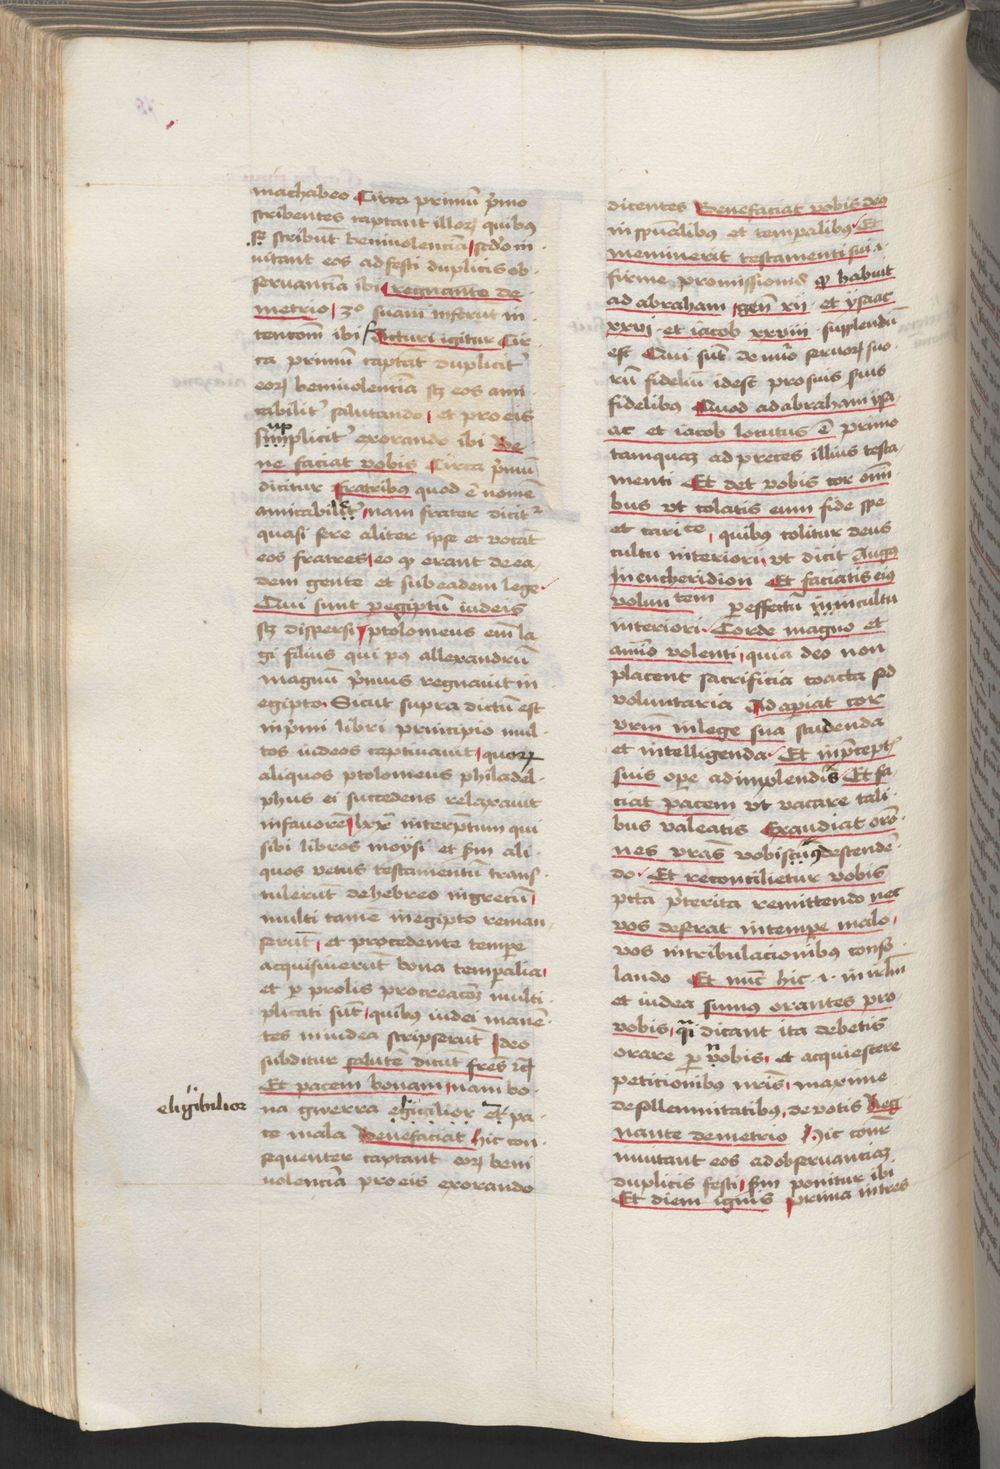 machabeo Circa primū p̄mo
scribentes captant illoꝝ quibus
scribūt beniuolenciā sc̄do in
uitant eos ad festi duplicis ob
seruanciā ibi regnante de
metrio 3º suam inserūt in
tencōm ibi facturi igitur Cir
ca primum captat duplicit̄
eoꝝ beniuolenciā sꝫ eos ami
cabilit̄ salutando et pro eis
simplicit̄ exorando ibi Be
up
ne faciat vobis Circa p̄mū
dicitur fratribus quod ē nomē
amicabilit̄ nam frater dicit̄
quasi fere aliter ipse et vocat
eos fratres eo ꝙ erant de ea
dem gente et sub eadem lege
Qui sunt ꝑ egiptū iudeis
sꝫ dispersi ptolomeus em̄ la
gi filius qui pꝰ allexandrū
magnū p̄mus regnauit in
egipto Sicut supra dictū est
in p̄mi libri principio mul
tos iudeos captiuauit quoꝝ
aliquos ptolomeus philadel
phus ei succedens relaxauit
in fauorē lxx interp̄tum qui
sibi libros moysi et ali
quos vetus testamentū trans
tulerūt de hebreo in grecū
multi tamē in egipto reman
serūt et procedente tempe
acquisiuerūt bona tempalia
et ꝑ prolis procreacōꝫ multi
plicati sūt quibus iudei manē
tes in iudea scripserūt Ideo
subditur salutē dicūt fres
Et pacem bonam nam bo
na gwerra eligibilior ē pa
eligibilior
ce mala Benefaciat hic con
sequenter captant eoꝝ beni
uolenciā pro eis exorando
dicentes Benefaciat vobis deo
in spūalibus et tempalibus Et
meminerit testamenti sui .i.
firme promissionis ꝙ habuit
ad abraham gen̄ xii et ysaac
xxvi et iacob xxviii supplendū
est Qui sūt de nūo seruoꝝ suo
rū fidelium idest pro suis suis
fidelibus Quod ad abraham ysa
ac et iacob locutus ē primo
tamquaꝫ ad preces illius testa
menti Et det vobis cor omi
bus vt colatis eum fide spe
et caritate quibus colitur deus
cultu interiori vt dicit Augus
In encheridion Et faciatis eius
voluntem ꝑ effectū in cultu
interiori Corde magno et
amīo volenti quia deo non
placent sacrificia coacta sed
voluntaria Adapiat cor
vrm̄ in lege sua studenda
et intelligenda Et in p̄cept
suis ope ad implendis Et fa
ciat pacem vt vacare tali
bus valeatis Exaudiat orō
nes vras vobiscū descenden
do Et reconcilietur vobis
pctā p̄terita remittendo nec
vos deserat in tempe malo
vos in tribulacionibus conso
lando Et nūc hic .i. in irlm̄
et iudea sumus orantes pro
vobis dicant ita debetis
orare ꝑ nobis et acquiescere
petitionibus nris maxime
de sollennitatibus deuotis Reg
nante demetrio Hic cōnr
inuitant eos ad obseruanciaꝫ
duplicis festi ponitur ibi
Et diem ignis prima in tres